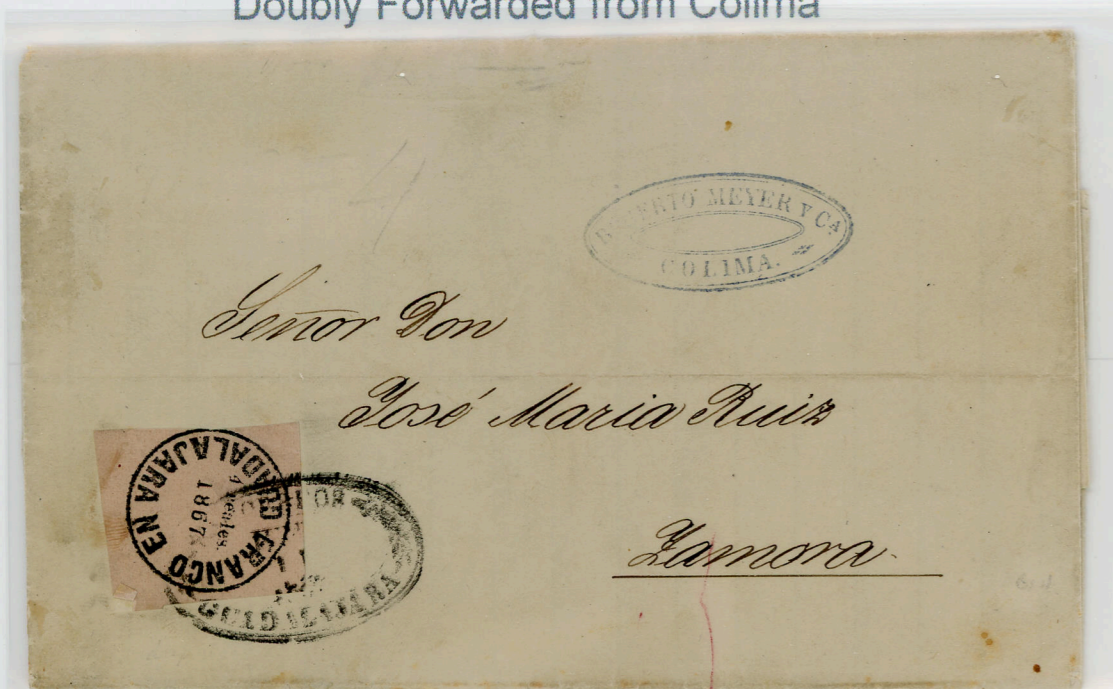 Doubly Forwarded from Colima
4
ROBERTO MEYER Y Cª
COLIMA.
Señor Don
José Maria Ruiz
Zamora
FRANCO EN GUADALAJARA
4 reales.
1867